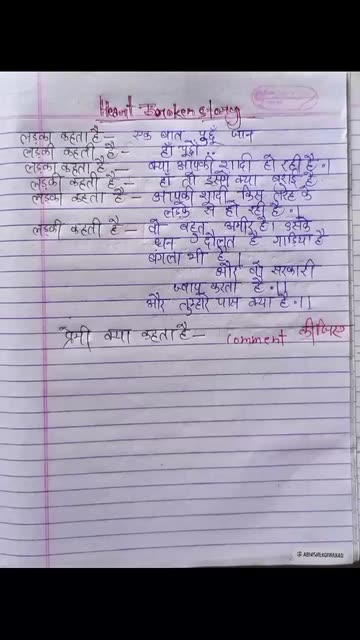 Heart Broken story
लड़का कहता है – एक बात पूछूँ जान
लड़की कहती है – हाँ पूछो
लड़का कहता है – क्या आपकी शादी हो रही है ।
लड़की कहती है – हाँ तो इसमें क्या बुराई है
लड़का कहता है – आपकी शादी किस तरह के
लड़के से हो रही है ।
लड़की कहती है – वो बहुत अमीर है। उसके
धन दौलत है गाड़िया है
बंगला भी है ।
और वो सरकारी
ज्वाप करता है ।।
और तुम्हारे पास क्या है ।।
प्रेमी क्या कहता है – Comment कीजिए